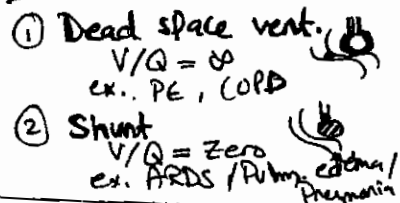 ① Dead space vent.
V/Q = ∞
ex.. PE, COPD
② Shunt
V/Q = Zero
ex. ARDS / Pulm. edema /
Pneumonia